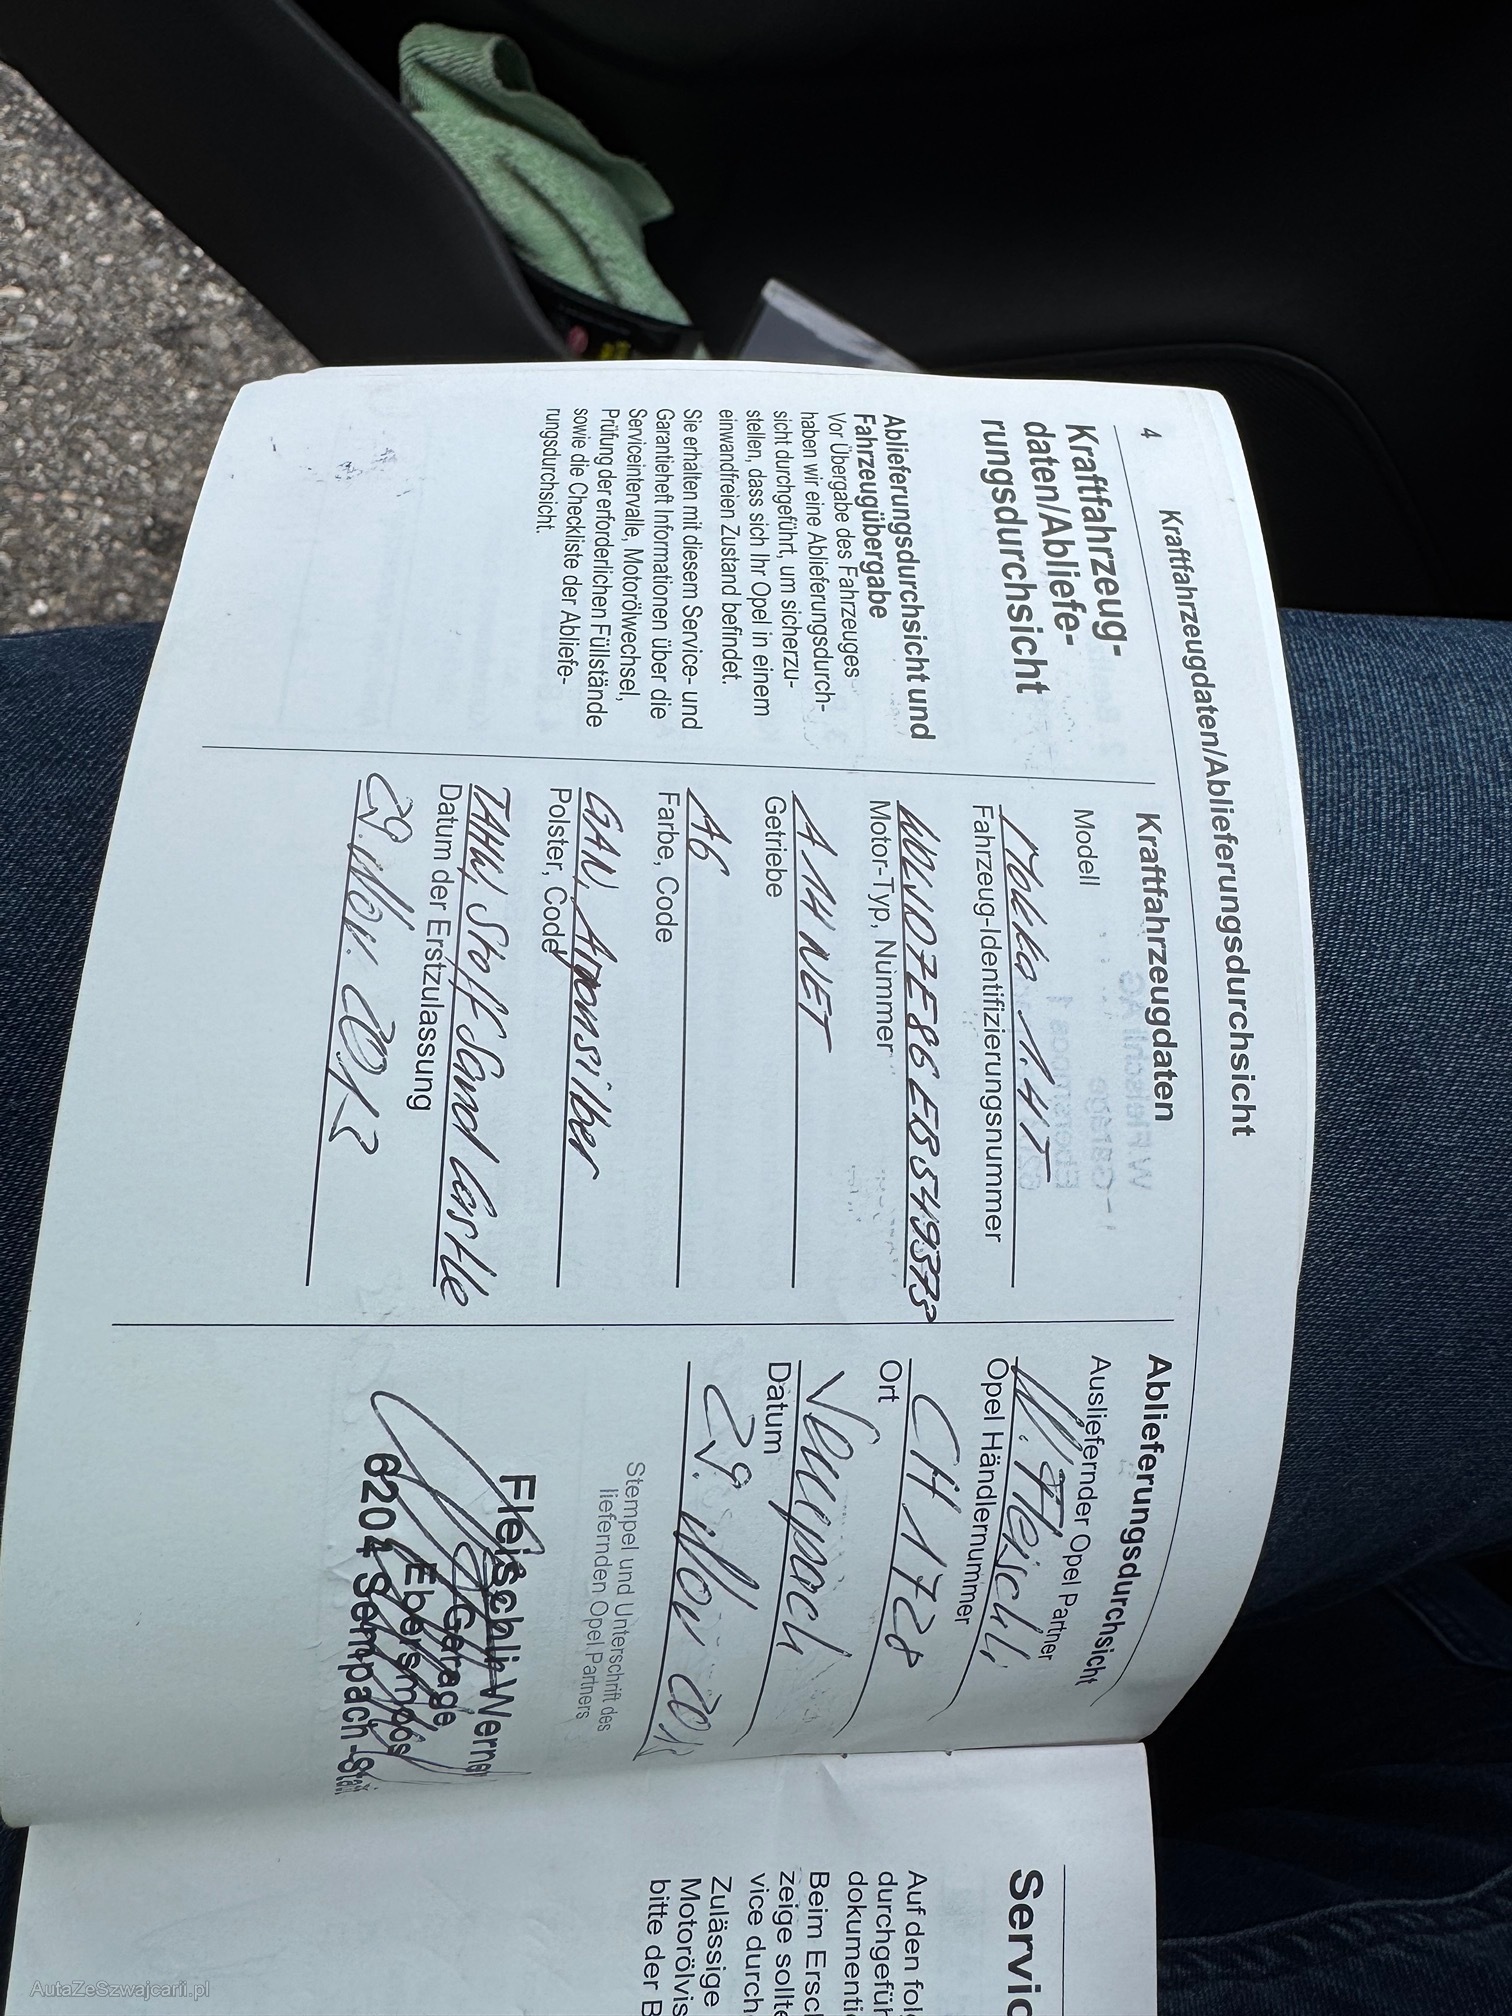 4
Kraftfahrzeugdaten/Ablieferungsdurchsicht
Kraftfahrzeug-
daten/Abliefe-
rungsdurchsicht
Ablieferungsdurchsicht und
Fahrzeugübergabe
Vor Übergabe des Fahrzeuges
haben wir eine Ablieferungsdurch-
sicht durchgeführt, um sicherzu-
stellen, dass sich Ihr Opel in einem
einwandfreien Zustand befindet.
Sie erhalten mit diesem Service- und
Garantieheft Informationen über die
Serviceintervalle, Motorölwechsel,
Prüfung der erforderlichen Füllstände
sowie die Checkliste der Abliefe-
rungsdurchsicht.
Kraftfahrzeugdaten
Modell
Mokka 1.4T
Fahrzeug-Identifizierungsnummer
Motor-Typ, Nummer
A 14 NET
Getriebe
A6
Farbe, Code
GAN, Argonsilber
Polster, Code
TAHV Stoff Sand Castle
Datum der Erstzulassung
29. Nov. 2013
Ablieferungsdurchsicht
Ausliefernder Opel Partner
W. Fleischli
Opel Händlernummer
CH 1728
Ort
Datum
29. Nov 2013
Stempel und Unterschrift des
liefernden Opel Partners
Fleischli Werner
Garage
Ebersmoos
6204 Sempach-Stadt
Servic
Auf den fol
durchgefüh
dokumenti
Beim Ersch
zeige sollte
vice durch
Zulässige
Motorölvis
bitte der B
AutaZeSzwajcarii.pl